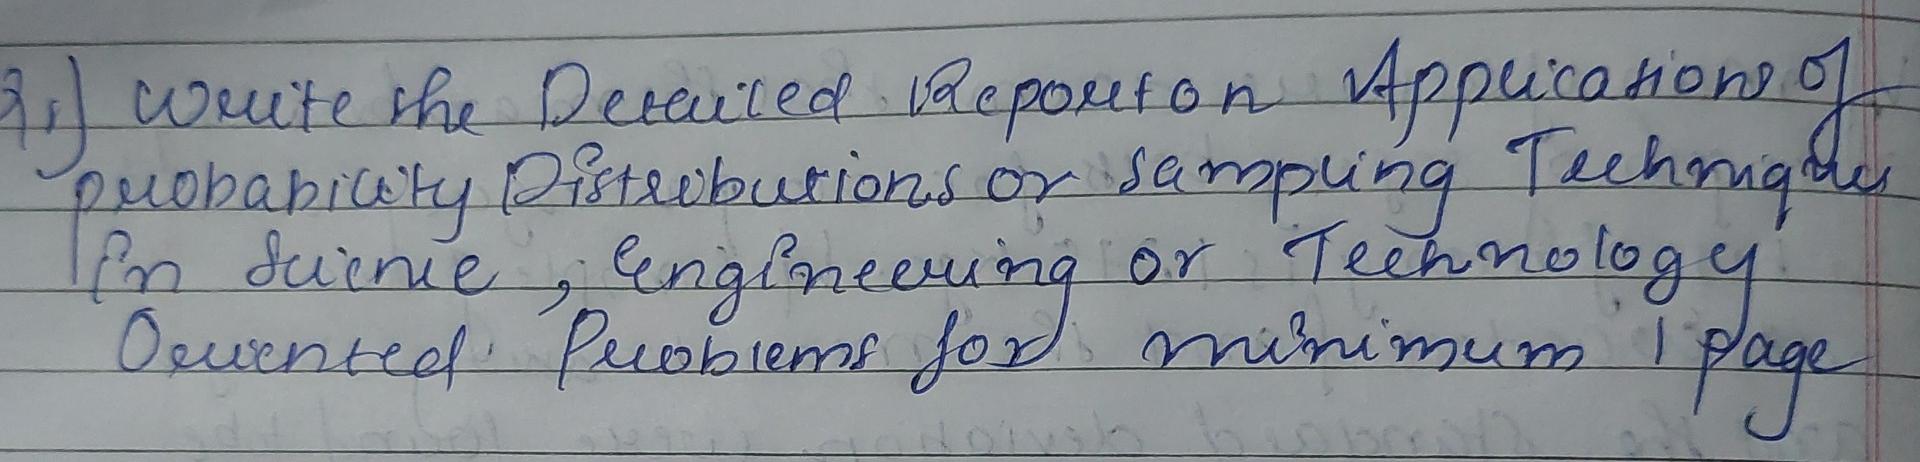 3.) Write the Detailed Report on Applications of
probability Distributions or sampling Technique
in Science, Engineering or Technology
Oriented Problems for minimum 1 page